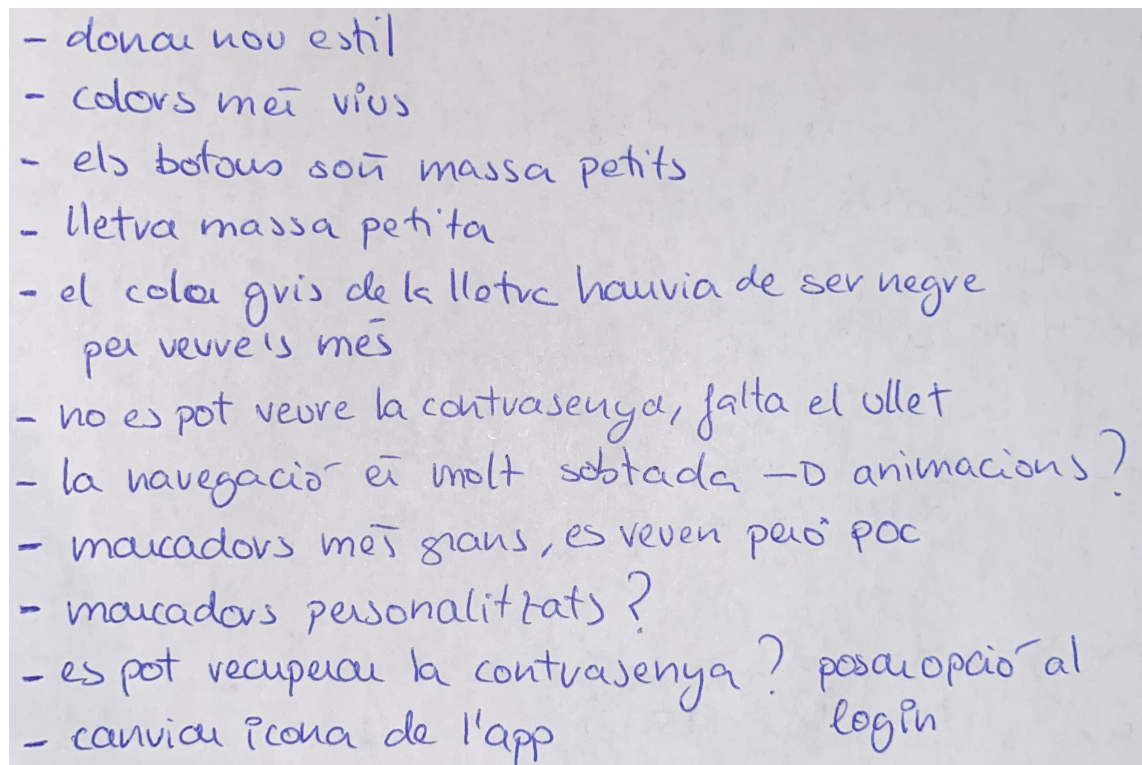 - donar nou estil
- colors més vius
- els botons són massa petits
- lletra massa petita
- el color gris de la lletra hauria de ser negre
per veure's més
- no es pot veure la contrasenya, falta el ullet
- la navegació és molt sobtada → animacions?
- marcadors més grans, es veuen però poc
- marcadors personalitzats?
- es pot recuperar la contrasenya? posar opció al
login
- canviar icona de l'app